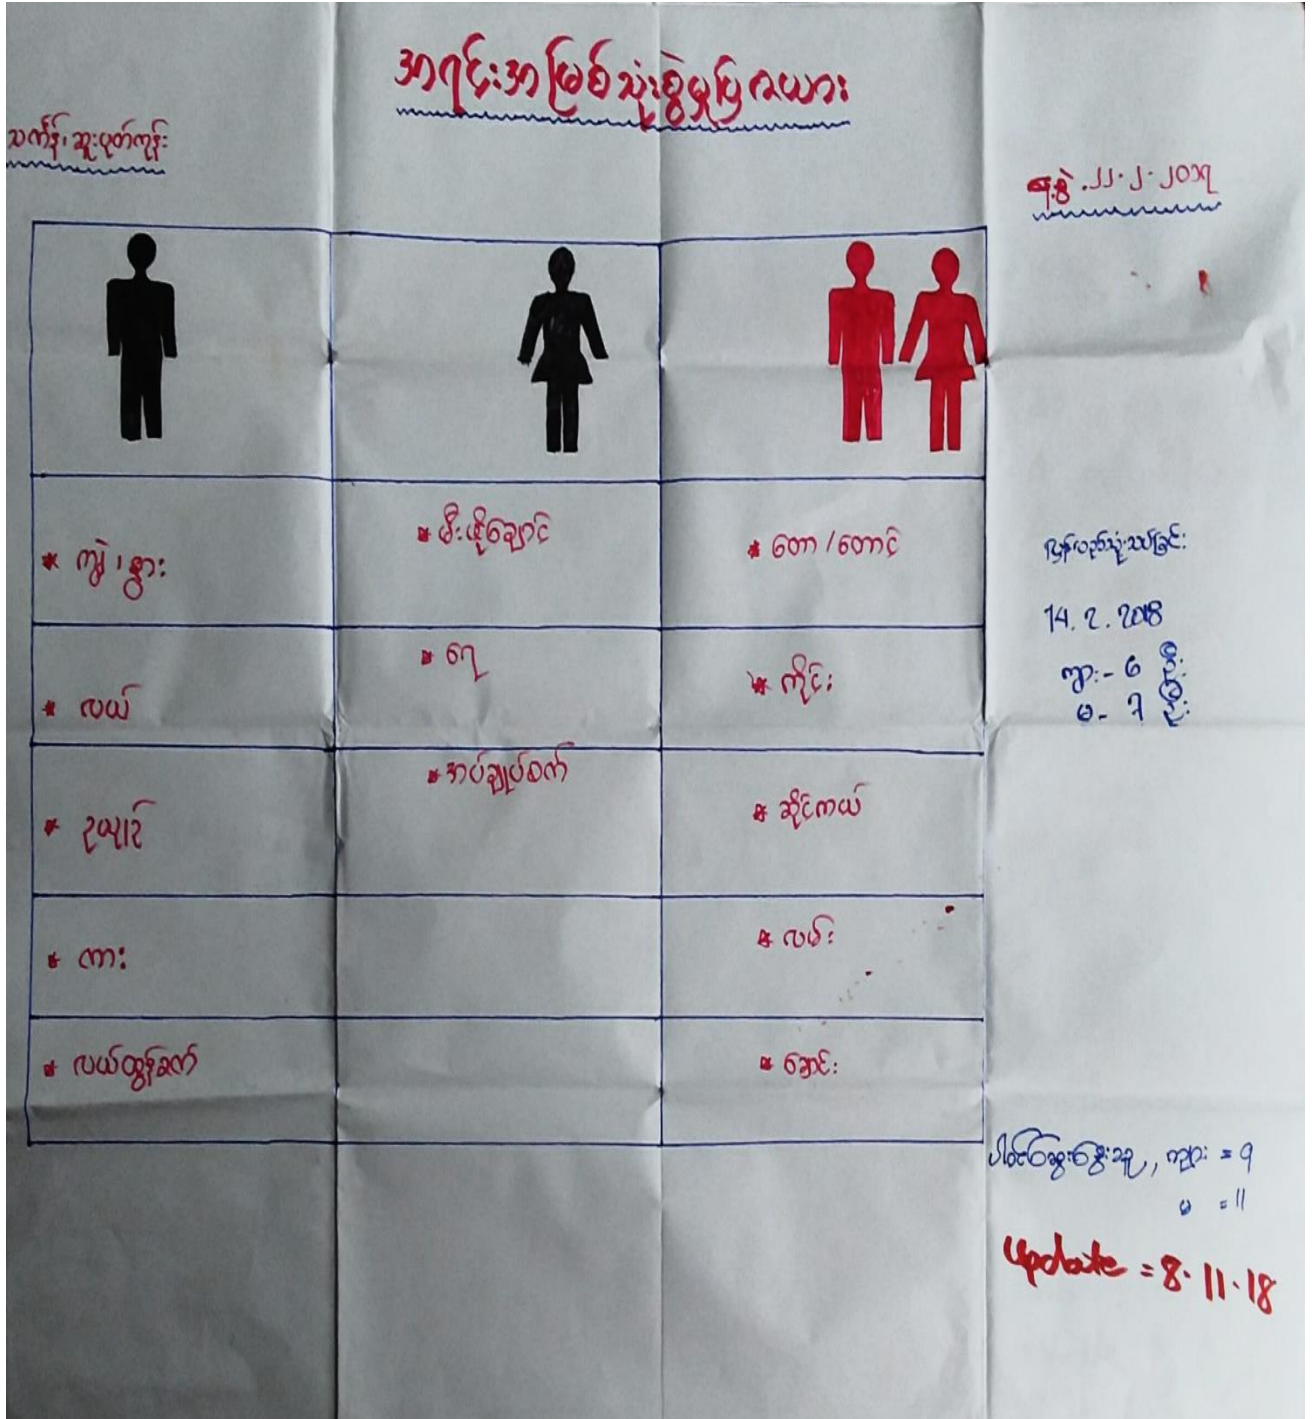 အရင်းအမြစ်သုံးစွဲမှုပြဇယား
သက်န်၊ဆူးပုတ်ကုန်း
နေ့စွဲ.၂၂.၂.၂၀၁၇
* ကျွဲ ၊ နွား
* မီးဖိုချောင်
* တော / တောင်
* လယ်
* ရေ
* ကိုင်း
* ဥယျာဉ်
* အပ်ချုပ်စက်
* ဆိုင်ကယ်
* ကား
* လမ်း
* လယ်ထွန်စက်
* ချောင်း
ပြန်လည်သုံးသပ်ခြင်း
14.2.2018
ကျား - 6 ဦး
မ - 7 ဦး
ပါဝင်ဆွေးနွေးသူ, ကျား = 9
မ = 11
update = 8.11.18